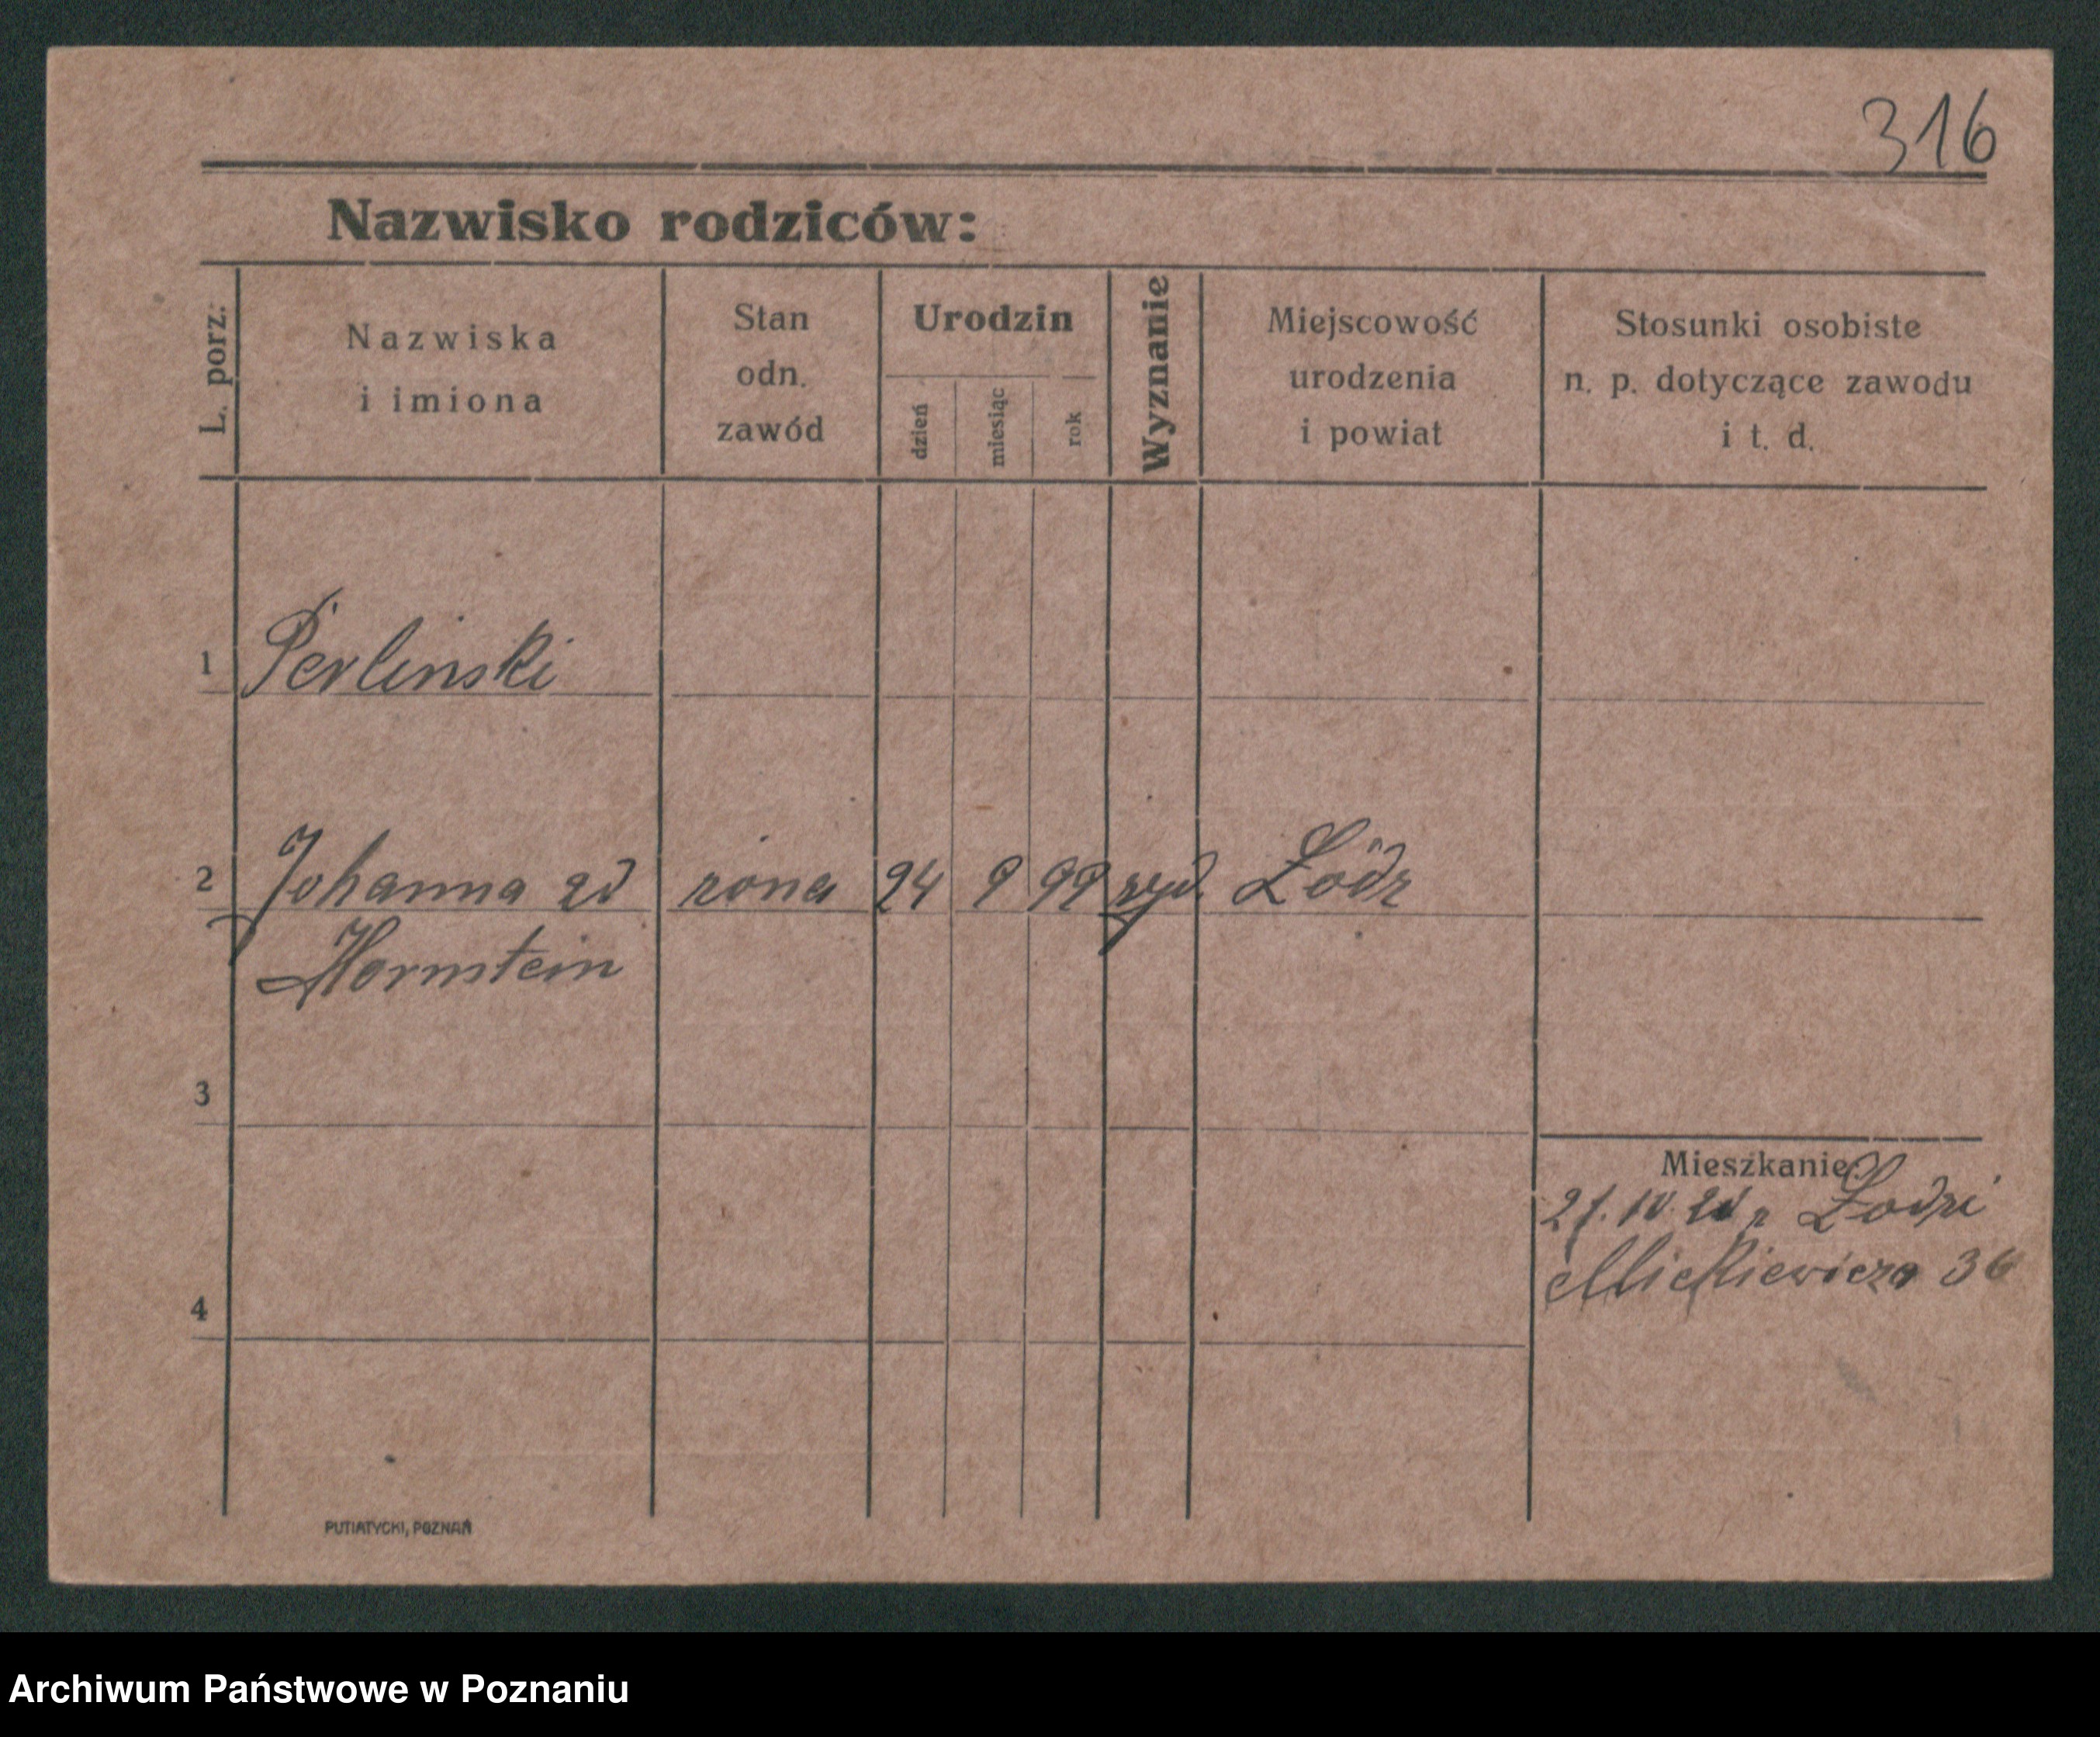 316
Nazwisko rodziców:
L. porz:
Nazwiska
i imiona
Stan
odn.
zawód
Urodzin
dzień
miesiąc
rok
Wyznanie
Miejscowość
urodzenia
i powiat
Stosunki osobiste
n. p. dotyczące zawodu
i t. d.
1 Perlinski
2 Johanna zd żona 24 9 99 żyd. Łódz
Hornstein
3
Mieszkanie:
z Łodzi
Mickiewicza 36
4
PUTIATYCKI, POZNAŃ
Archiwum Państwowe w Poznaniu